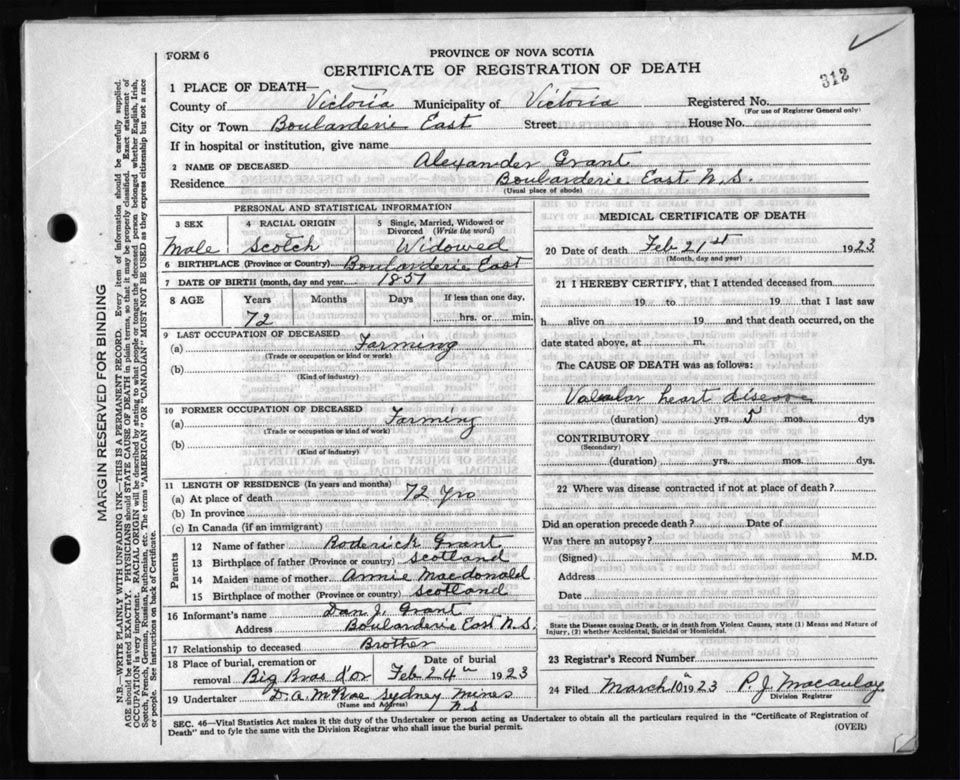 312
FORM 6
PROVINCE OF NOVA SCOTIA
CERTIFICATE OF REGISTRATION OF DEATH
1 PLACE OF DEATH—
County of Victoria Municipality of Victoria Registered No.
(For use of Registrar General only)
City or Town Boularderie East Street House No.
If in hospital or institution, give name
2 NAME OF DECEASED Alexander Grant
Residence Boularderie East N.S.
(Usual place of abode)
PERSONAL AND STATISTICAL INFORMATION
3 SEX 4 RACIAL ORIGIN 5 Single, Married, Widowed or Divorced (Write the word)
Male Scotch Widowed
6 BIRTHPLACE (Province or Country) Boularderie East
7 DATE OF BIRTH (month, day and year) 1851
8 AGE Years Months Days If less than one day,
72 hrs. or min.
9 LAST OCCUPATION OF DECEASED
(a) Farming
(Trade or occupation or kind or work)
(b)
(Kind of industry)
10 FORMER OCCUPATION OF DECEASED
(a) Farming
(Trade or occupation or kind or work)
(b)
(Kind of industry)
11 LENGTH OF RESIDENCE (In years and months)
(a) At place of death 72 yrs
(b) In province
(c) In Canada (if an immigrant)
Parents
12 Name of father Roderick Grant
13 Birthplace of father (Province or country) Scotland
14 Maiden name of mother Annie Macdonald
15 Birthplace of mother (Province or country) Scotland
16 Informant's name Dan J. Grant
Address Boularderie East N.S.
17 Relationship to deceased Brother
18 Place of burial, cremation or removal Big Bras d'or
Date of burial Feb 24th 1923
19 Undertaker D. A. McRae Sydney Mines
NS
(Name and Address)
MEDICAL CERTIFICATE OF DEATH
20 Date of death Feb 21st 1923
(Month, day and year)
21 I HEREBY CERTIFY, that I attended deceased from
19 to 19 that I last saw
h alive on 19 and that death occurred, on the
date stated above, at m.
The CAUSE OF DEATH was as follows:
heart disease
(duration) yrs. 5 mos. dys
CONTRIBUTORY
(Secondary)
(duration) yrs. mos. dys.
22 Where was disease contracted if not at place of death?
Did an operation precede death? Date of
Was there an autopsy?
(Signed) M.D.
Address
Date
State the Disease causing Death, or in death from Violent Causes, state (1) Means and Nature of
Injury, (2) whether Accidental, Suicidal or Homicidal.
23 Registrar's Record Number
24 Filed March 10th 1923 P. J. Macaulay
Division Registrar
SEC. 46—Vital Statistics Act makes it the duty of the Undertaker or person acting as Undertaker to obtain all the particulars required in the "Certificate of Registration of
Death" and to fyle the same with the Division Registrar who shall issue the burial permit.
(OVER)
MARGIN RESERVED FOR BINDING
N.B.—WRITE PLAINLY WITH UNFADING INK—THIS IS A PERMANENT RECORD. Every item of information should be carefully supplied.
AGE should be stated EXACTLY. PHYSICIANS should STATE CAUSE OF DEATH in plain terms, so that it may be properly classified. Exact statement of
OCCUPATION is very important. RACIAL ORIGIN will be described by stating to what people or tongue the deceased person belonged whether English, Irish,
Scotch, French, German, Russian, Ruthenian, etc. The terms "AMERICAN" OR "CANADIAN" MUST NOT BE USED as they express citizenship but not a race
or people. See instructions on back of Certificate.